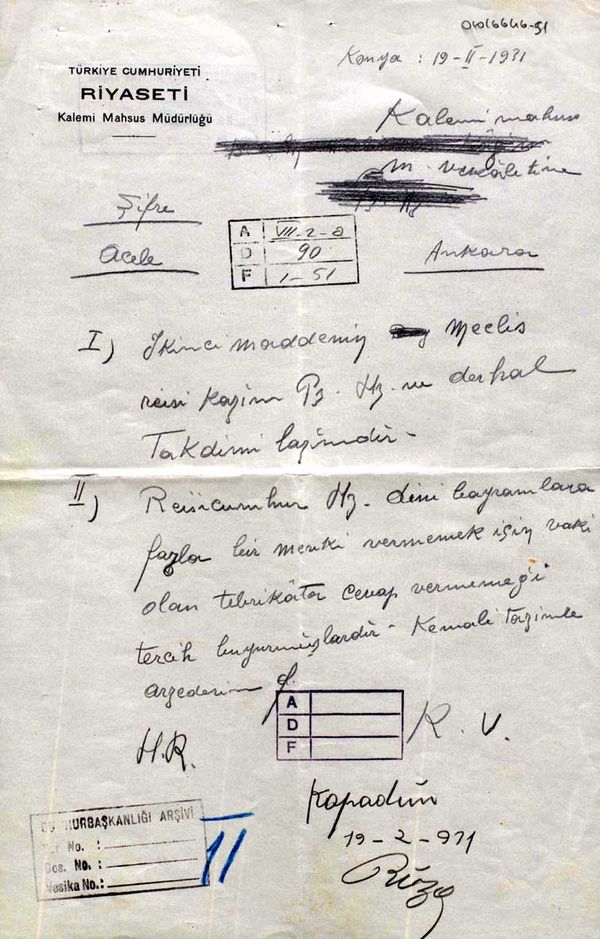 01016646-51
Konya : 19-II-1931
TÜRKİYE CUMHURİYETİ
RİYASETİ
Kalemi Mahsus Müdürlüğü
Kalemi mahsus
m. vekâletine
Şifre
Acele
A VII-2-a
D 90
F 1-51
Ankara
I) İkinci maddenin Meclis
reisi Kazim Pş. Hz. ne derhal
Takdimi lazimdir-
II) Reisicumhur Hz. dini bayramlara
fazla bir mevki vermemek için vaki
olan tebrikâta cevap vermemeği
tercih buyurmuşlardir- Kemali tazimle
arzederim
A
D
F
H.R.
R. V.
Kapadım
19-2-931
HURBAŞKANLIĞI ARŞİVİ
No. :
Dos. No. :
Vesika No.:
11